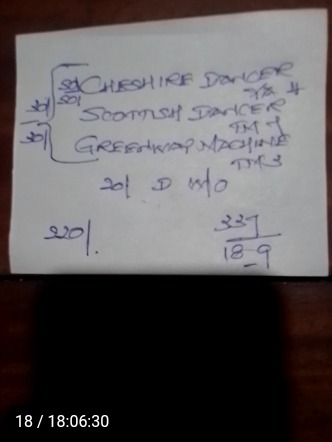 50/ CHESHIRE DANCER
50/
SCOTTISH DANCER
30/
GREENWAY MACHINE
30/
20/ D W/O
220/.
337
18-9
18 / 18:06:30